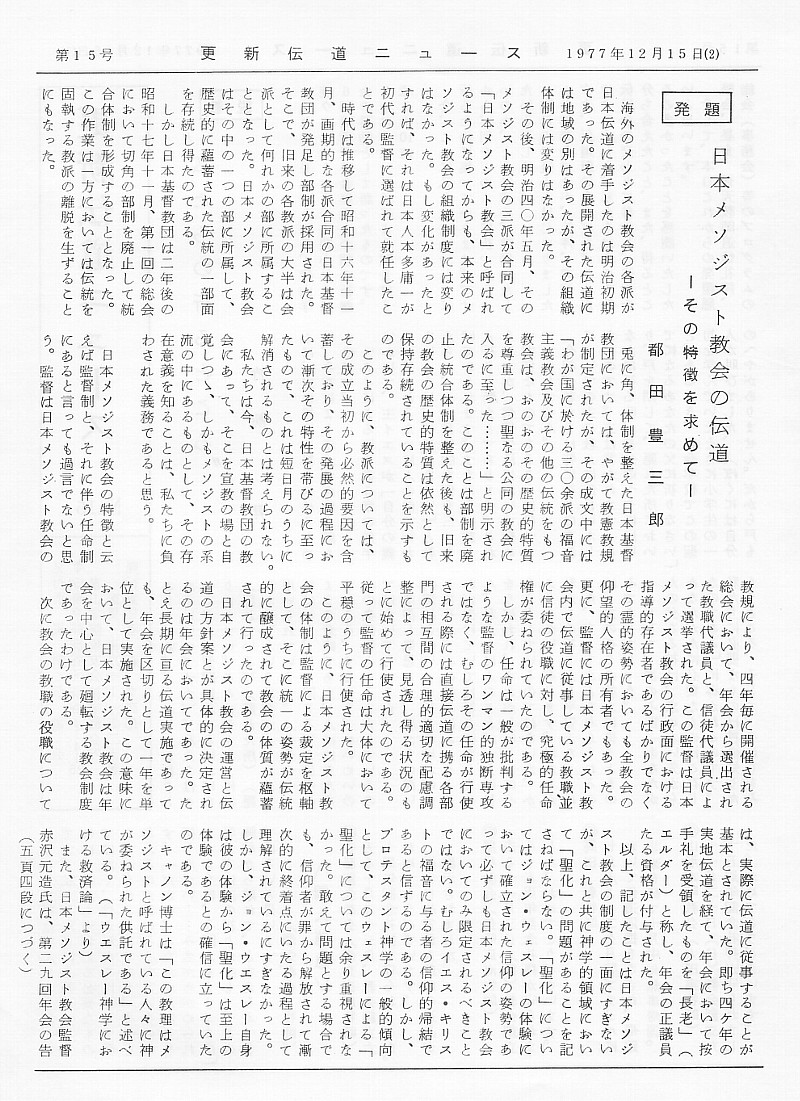 第１５号
更新伝道ニュース
１９７７年１２月１５日(2)
発題
日本メソジスト教会の伝道
ーその特徴を求めてー
都田豊三郎
海外のメソジスト教会の各派が
日本伝道に着手したのは明治初期
であった。その展開された伝道に
は地域の別はあったが、その組織
体制には変りはなかった。
その後、明治四〇年五月、その
メソジスト教会の三派が合同して
「日本メソジスト教会」と呼ばれ
るようになってからも、本来のメ
ソジスト教会の組織制度には変り
はなかった。もし変化があったと
すれば、それは日本人本多庸一が
初代の監督に選ばれて就任したこ
とである。
時代は推移して昭和十六年十一
月、画期的な各派合同の日本基督
教団が発足し部制が採用された。
そこで、旧来の各教派の大半は会
派として何れかの部に所属するこ
ととなった。日本メソジスト教会
はその中の一つの部に所属して、
歴史的に蘊蓄された伝統の一部面
を存続し得たのである。
しかし日本基督教団は二年後の
昭和十七年十一月、第一回の総会
において切角の部制を廃止して統
合体制を形成することとなった。
この作業は一方においては伝統を
固執する教派の離脱を生ずること
にもなった。
兎に角、体制を整えた日本基督
教団においては、やがて教憲教規
が制定されたが、その成文中には
「わが国に於ける三〇余派の福音
主義教会及びその他の伝統をもつ
教会は、おのおのその歴史的特質
を尊重しつつ聖なる公同の教会に
入るに至った………」と明示され
たのである。このことは部制を廃
止し統合体制を整えた後も、旧来
の教会の歴史的特質は依然として
保持存続されていることを示すも
のである。
このように、教派については、
その成立当初から必然的要因を含
蓄しており、その発展の過程にお
いて漸次その特性を帯びるに至っ
たもので、これは短日月のうちに
解消されるものとは考えられない。
私たちは今、日本基督教団の教
会にあって、そこを宣教の場と自
覚しつゝ、しかもメソジストの系
流の中にあるものとして、その存
在意義を知ることは、私たちに負
わされた義務であると思う。
日本メソジスト教会の特徴と云
えば監督制と、それに伴う任命制
にあると言っても過言でないと思
う。監督は日本メソジスト教会の
教規により、四年毎に開催される
総会において、年会から選出され
た教職代議員と、信徒代議員によ
って選挙された。この監督は日本
メソジスト教会の行政面における
指導的存在者であるばかりでなく
その霊的姿勢においても全教会の
仰望的人格の所有者でもあった。
更に、監督には日本メソジスト教
会内で伝道に従事している教職並
に信徒の役職に対し、究極的任命
権が委ねられていたのである。
しかし、任命は一般が批判する
ような監督のワンマン的独断専攻
ではなく、むしろその任命が行使
される際には直接伝道に携る各部
門の相互間の合理的適切な配慮調
整によって、見透し得る状況のも
とに始めて行使されたのである。
従って監督の任命は大体において
平穏のうちに行使された。
このように、日本メソジスト教
会の体制は監督による裁定を枢軸
として、そこに統一の姿勢が伝統
的に醸成されて教会の体質が蘊蓄
されて行ったのである。
日本メソジスト教会の運営と伝
道の方針案とが具体的に決定され
るのは年会においてであった。た
とえ長期に亘る伝道実施であって
も、年会を区切りとして一年を単
位として実施された。この意味に
おいて、日本メソジスト教会は年
会を中心として廻転する教会制度
であったわけである。
次に教会の教職の役職について
は、実際に伝道に従事することが
基本とされていた。即ち四ケ年の
実地伝道を経て、年会において按
手礼を受領したものを「長老」（
エルダー）と称し、年会の正議員
たる資格が付与された。
以上、記したことは日本メソジ
スト教会の制度の一面にすぎない
が、これと共に神学的領域におい
て「聖化」の問題があることを記
さねばならない。「聖化」につい
てはジョン・ウェスレーの体験に
おいて確立された信仰の姿勢であ
って必ずしも日本メソジスト教会
においてのみ限定されるべきこと
ではない。むしろイエス・キリス
トの福音に与る者の信仰的帰結で
あると信ずるのである。しかし、
プロテスタント神学の一般的傾向
として、このウェスレーによる「
聖化」については余り重視されな
かった。敢えて問題とする場合で
も、信仰者が罪から解放されて漸
次的に終着点にいたる過程として
理解されているにすぎなかった。
しかし、ジョン・ウエスレー自身
は彼の体験から「聖化」は至上の
体験であるとの確信に立っていた
のである。
キャノン博士は「この教理はメ
ソジストと呼ばれている人々に神
が委ねられた供託である」と述べ
ている。（「ウエスレー神学にお
ける救済論」より）
また、日本メソジスト教会監督
赤沢元造氏は、第二九回年会の告
（五頁四段につづく）